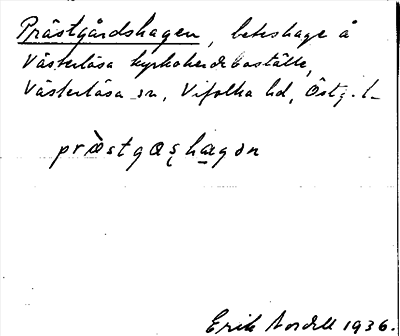 Prästgårdshagen, beteshage å
Västerlösa kyrkoherdeboställe,
Västerlösa sn, Vifolka hd, Östg. l.
præ̀stgɷʂhagən
Erik Nordell 1936.